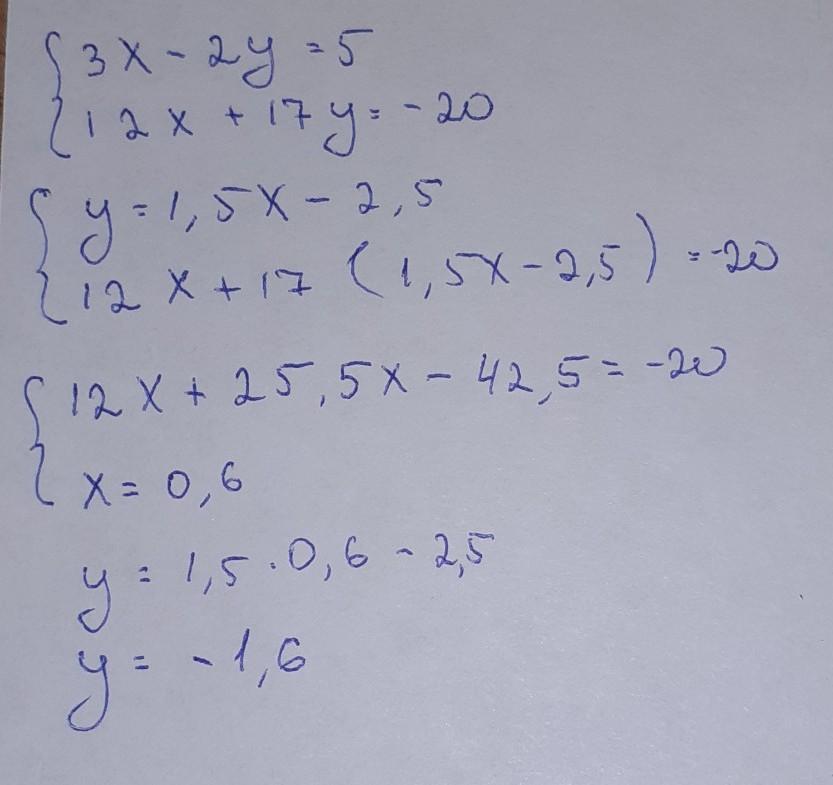 3x - 2y = 5
12x + 17y = -20
y = 1,5x - 2,5
12x + 17 (1,5x - 2,5) = -20
12x + 25,5x - 42,5 = -20
x = 0,6
y = 1,5 · 0,6 - 2,5
y = -1,6